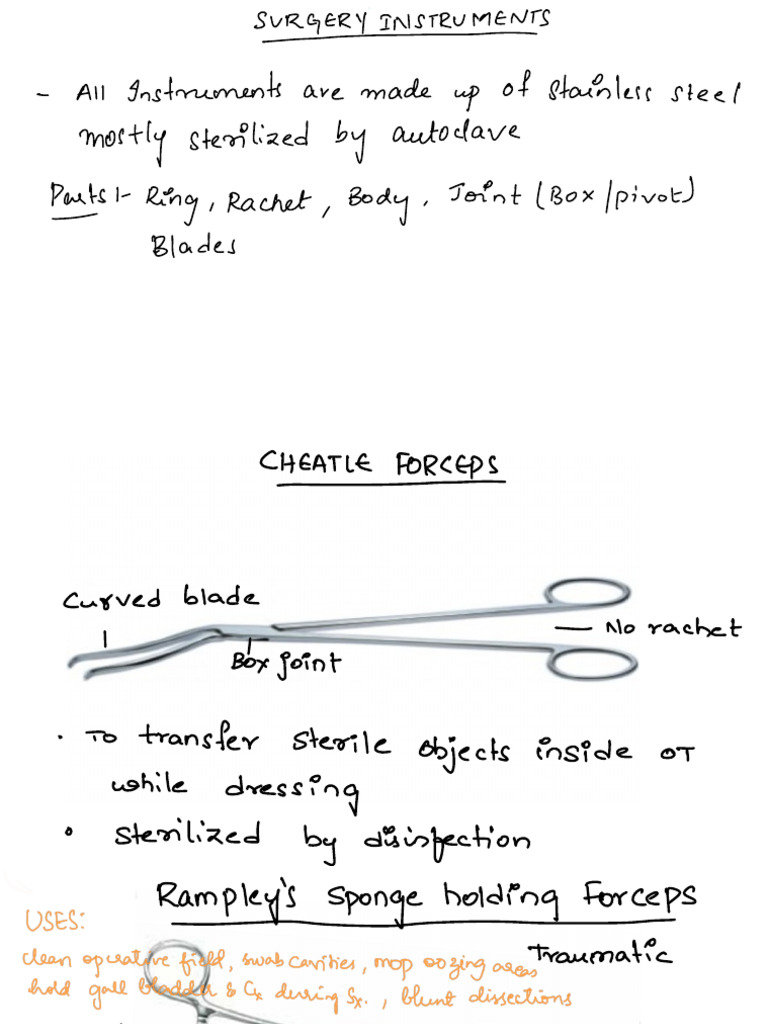 SURGERY INSTRUMENTS
- All Instruments are made up of stainless steel
mostly sterilized by autoclave
Parts :- Ring, Rachet, Body, Joint (Box/pivot)
Blades
CHEATLE FORCEPS
Curved blade
No rachet
Box joint
• To transfer sterile objects inside OT
while dressing
• Sterilized by disinfection
Rampley's sponge holding forceps
USES:
Traumatic
clean operative field, swab cavities, mop oozing areas
hold gall bladder & Cx during Sx., blunt dissections